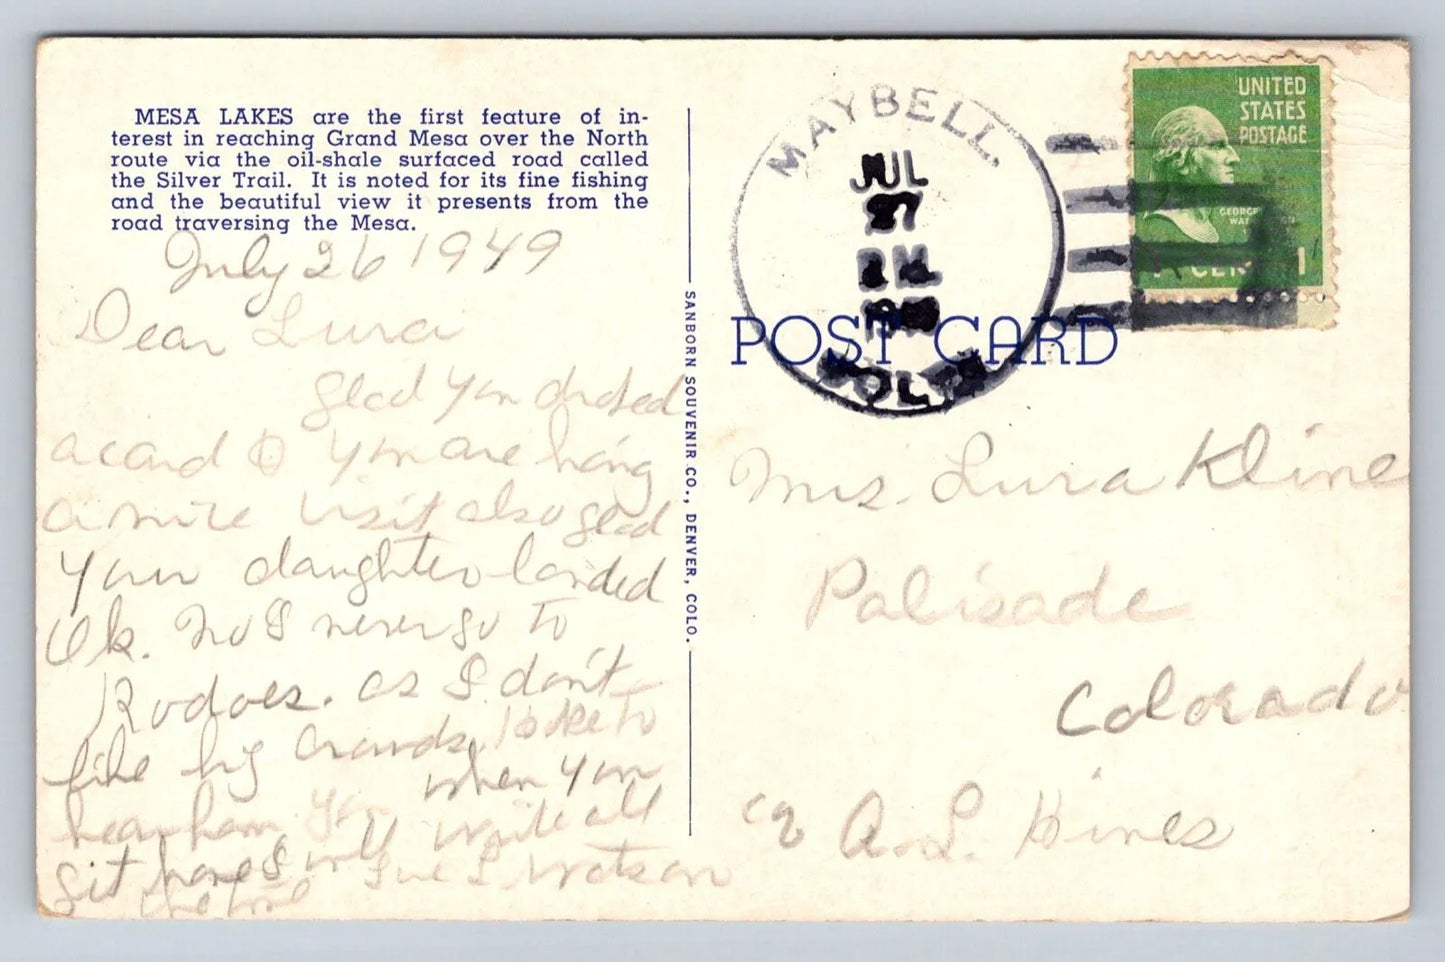 MESA LAKES are the first feature of in-
terest in reaching Grand Mesa over the North
route via the oil-shale surfaced road called
the Silver Trail. It is noted for its fine fishing
and the beautiful view it presents from the
road traversing the Mesa.
July 26 1949
Dear Lura
glad you droped
a card & you are having
a nice visit also glad
your daughter landed
Ok. No I never go to
Rodoes. as I don't
like big crowds.
hear from you when you
git home I will write all
the time Sue L Watson
SANBORN SOUVENIR CO., DENVER, COLO.
MAYBELL,
JUL
27
COLO.
UNITED
STATES
POSTAGE
GEORGE
1 CENT 1
POST CARD
Mrs. Lura Kline
Palisade
Colorado
A. L. Hines